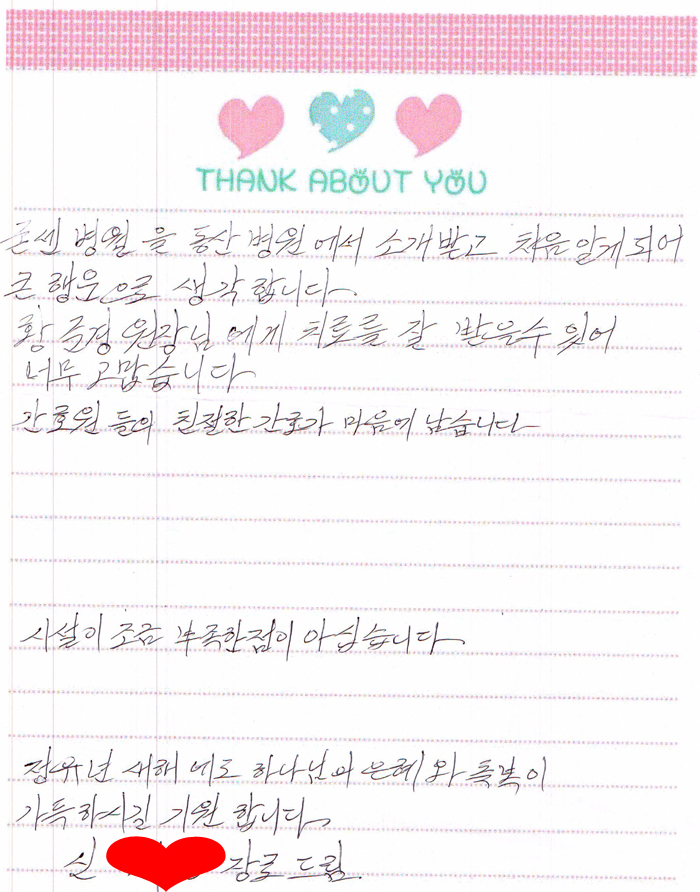 THANK ABOUT YOU
굿센 병원 을 동산 병원 에서 소개받고 처음 알게되어
큰 행운으로 생각합니다.
황 준경 원장님 에게 치료를 잘 받을수 있어
너무 고맙습니다
간호원 들의 친절한 간호가 마음에 남습니다
시설이 조금 부족한점이 아쉽습니다.
정유년 새해 에도 하나님의 은혜와 축복이
가득하시길 기원 합니다.
신 장로 드림.